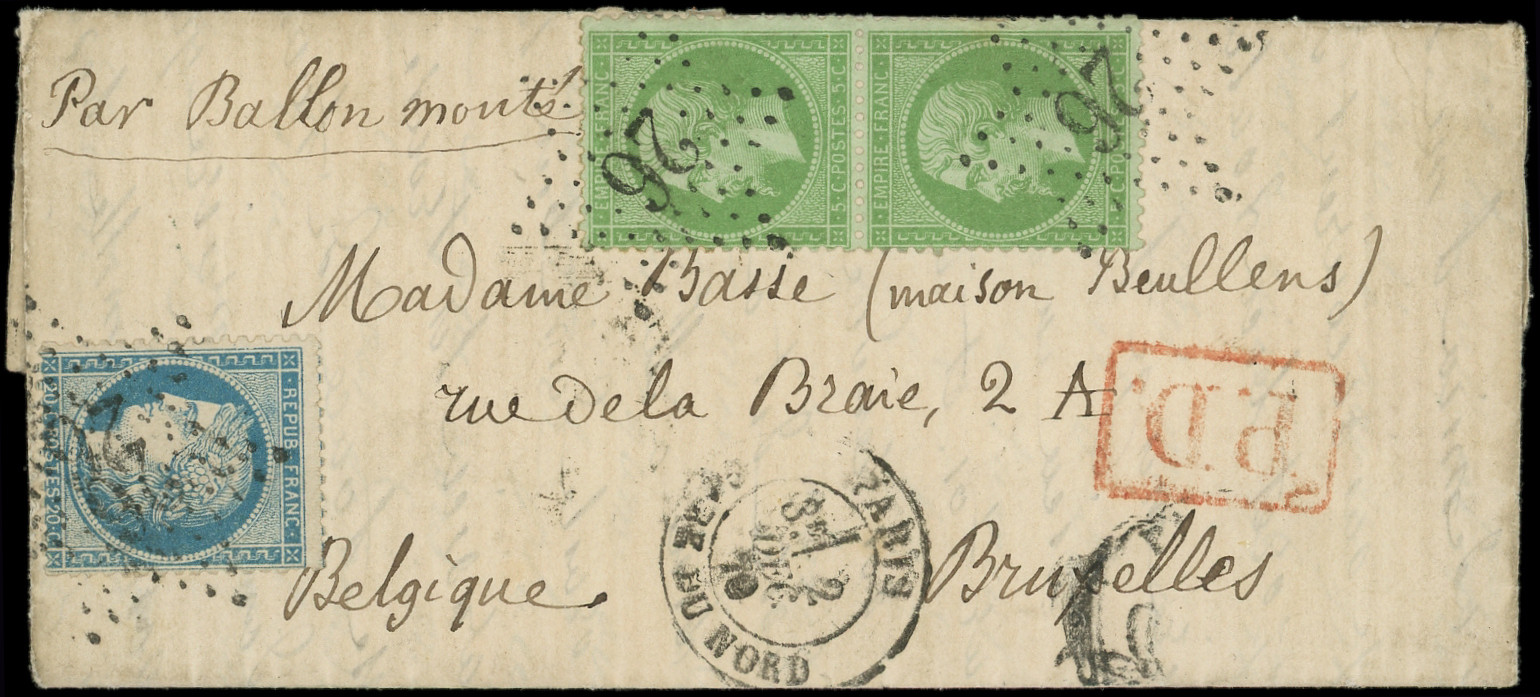 Par Ballon monté
EMPIRE FRANC
5·C·POSTES·5·C·
EMPIRE·FRANC·
5·C·PO
26
26
Madame Basse (maison Beullens)
rue de la Braie, 2 A
REPUB·FRANC·
20·C·POSTES·20·C
26
P.D.
Belgique. Bruxelles
PARIS
3E
2
DEC.
70
GARE DU NORD